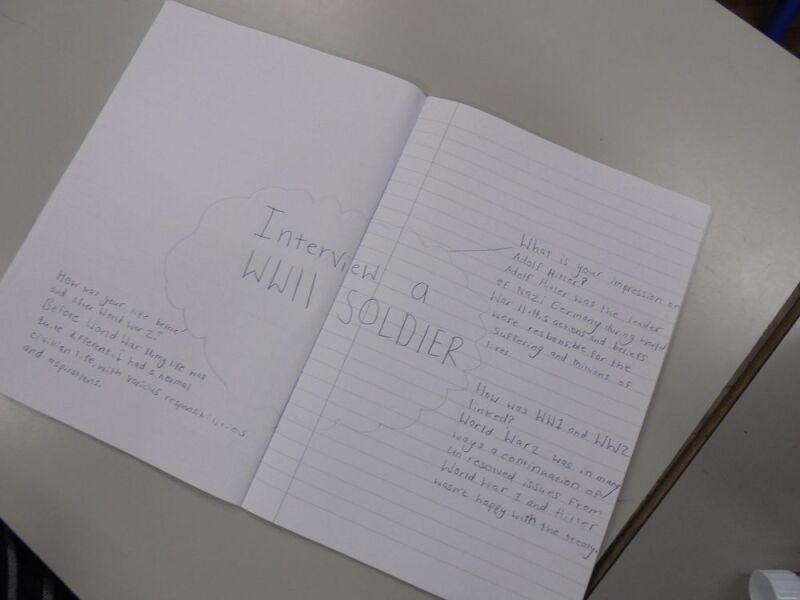 Interview a
WWII SOLDIER
How was your life before
and after World War 2?
Before World War II, my life was
quite different. I had a normal
civilian life, with various responsibilities
and aspirations.
What is your impression on
Adolf Hitler?
Adolf Hitler was the leader
of Nazi Germany during World
War II. His actions and beliefs
were responsible for the
suffering and millions of
lives.
How was WW1 and WW2
linked?
World War 2 was in many
ways a continuation of
unresolved issues from
World War 1 and Hitler
wasn't happy with the treaty.